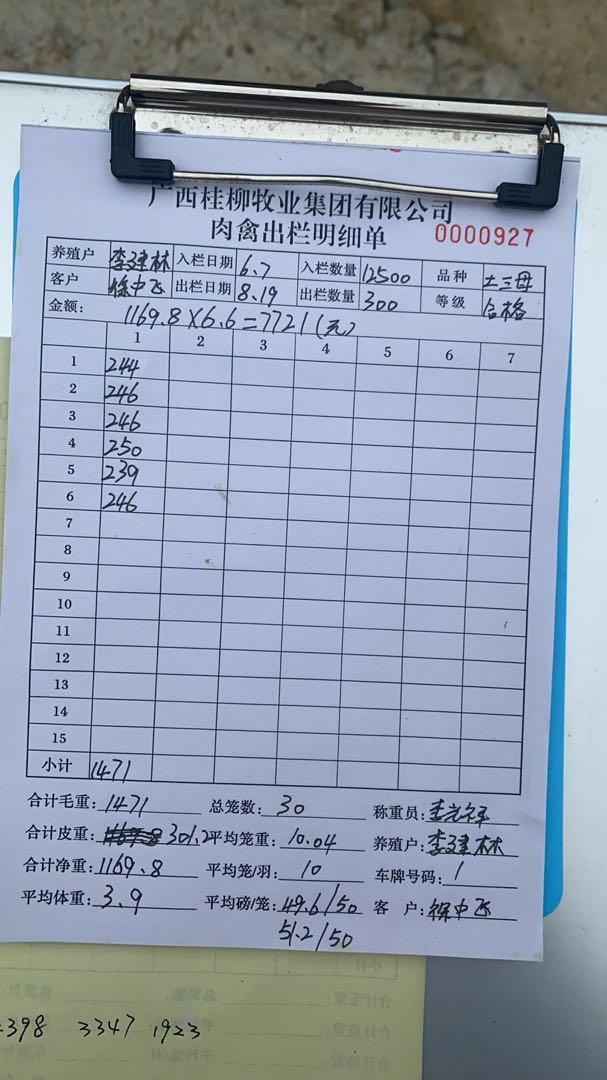 广西桂柳牧业集团有限公司
肉禽出栏明细单 0000927
养殖户 李建林 入栏日期 6.7 入栏数量 12500 品种 土三母
客户 徐中飞 出栏日期 8.19 出栏数量 300 等级 合格
金额: 1169.8×6.6=7721(元)
1 2 3 4 5 6 7
1 244
2 246
3 246
4 250
5 239
6 246
7
8
9
10
11
12
13
14
15
小计 1471
合计毛重: 1471 总笼数: 30 称重员:
合计皮重: 301.2 平均笼重: 10.04 养殖户: 李建林
合计净重: 1169.8 平均笼/羽: 10 车牌号码: 1
平均体重: 3.9 平均磅/笼: 49.6/50 客 户: 徐中飞
51.2/50
小计
合计毛重:
合计皮重:
合计净重:
398 3347 1923